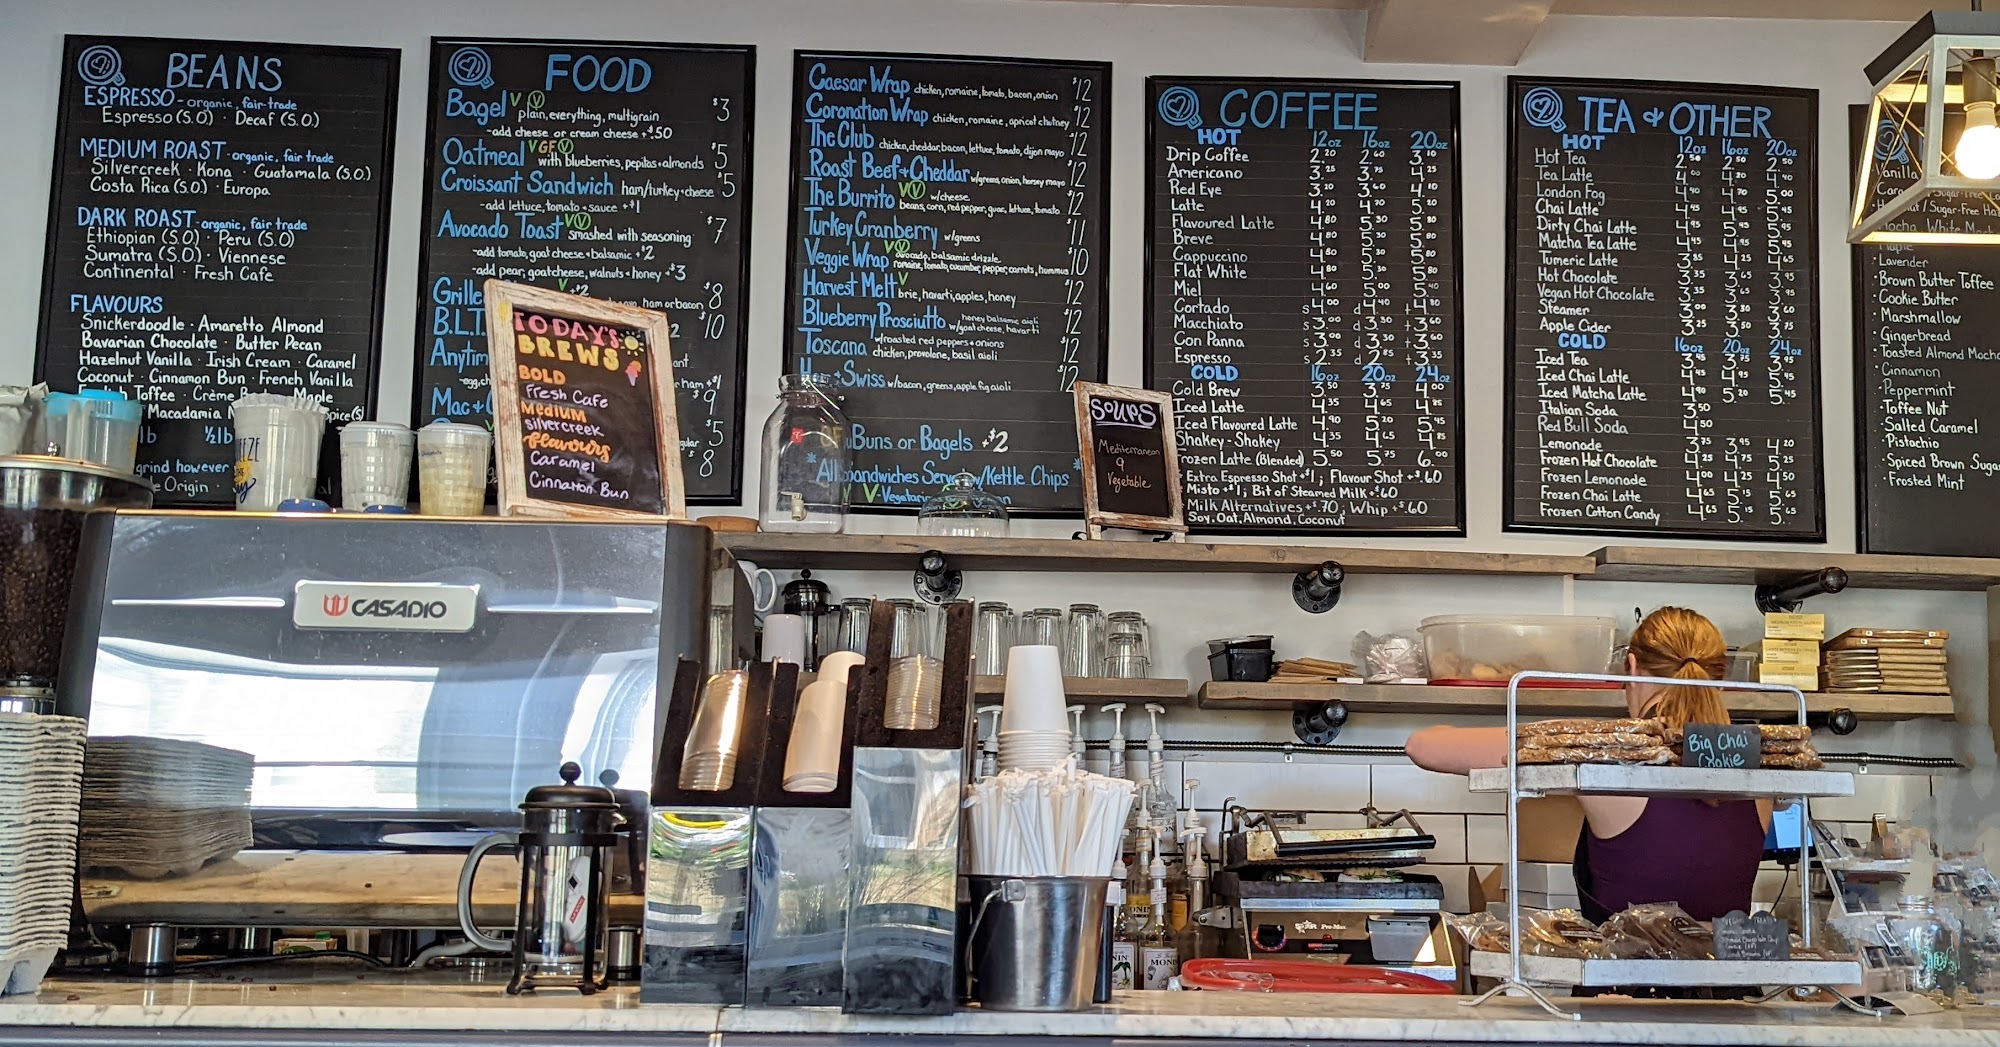 BEANS
ESPRESSO - organic, fair-trade
Espresso (S.O.) · Decaf (S.O.)
MEDIUM ROAST - organic, fair trade
Silvercreek · Kona · Guatamala (S.O.)
Costa Rica (S.O.) · Europa
DARK ROAST - organic, fair trade
Ethiopian (S.O.) · Peru (S.O)
Sumatra (S.O.) · Viennese
Continental · Fresh Cafe
FLAVOURS
Snickerdoodle · Amaretto Almond
Bavarian Chocolate · Butter Pecan
Hazelnut Vanilla · Irish Cream · Caramel
Coconut · Cinnamon Bun · French Vanilla
Toffee · Crème Maple
Macadamia
lb ½lb
grind however
Origin
FOOD
Bagel V V plain, everything, multigrain $3
-add cheese or cream cheese +$.50
Oatmeal V GF V with blueberries, pepitas + almonds $5
Croissant Sandwich ham/turkey + cheese $5
-add lettuce, tomato + sauce + $1
Avocado Toast V V smashed with seasoning $7
-add tomato, goat cheese + balsamic + $2
-add pear, goat cheese, walnuts + honey + $3
ham or bacon $8
B.L.T. $10
ham +$1
$9
$5
$8
TODAY'S
BREWS
BOLD
Fresh Cafe
Medium
silvercreek
flavours
Caramel
Cinnamon Bun
Caesar Wrap chicken, romaine, tomato, bacon, onion $12
Coronation Wrap chicken, romaine, apricot chutney $12
The Club chicken, cheddar, bacon, lettuce, tomato, dijon mayo $12
Roast Beef + Cheddar w/greens, onion, horsey mayo $12
The Burrito V V w/cheese beans, corn, red pepper, guac, lettuce, tomato $12
Turkey Cranberry w/greens $11
Veggie Wrap V V avocado, balsamic drizzle $10
romaine, tomato, cucumber, pepper, carrots, hummus
Harvest Melt V brie, havarti, apples, honey $12
Blueberry Prosciutto honey balsamic aioli $12
w/goat cheese, havarti
Toscana w/roasted red peppers + onions $12
chicken, provolone, basil aioli
Swiss w/bacon, greens, apple fig aioli $12
Buns or Bagels +$2
w/Kettle Chips
SOUPS
Mediterranean
Vegetable
COFFEE
HOT 12oz 16oz 20oz
Drip Coffee 2.20 2.60 3.10
Americano 3.25 3.75 4.25
Red Eye 3.20 3.60 4.10
Latte 4.20 4.70 5.20
Flavoured Latte 4.80 5.30 5.80
Breve 4.80 5.30 5.80
Cappuccino 4.20 4.70 5.20
Flat White 4.80 5.30 5.80
Miel 4.60 5.00 5.40
Cortado s4.00 d4.40 t4.80
Macchiato s3.00 d3.30 t3.60
Con Panna s3.00 d3.30 t3.60
Espresso s2.35 d2.85 t3.35
COLD 16oz 20oz 24oz
Cold Brew 3.50 3.75 4.00
Iced Latte 4.35 4.65 4.85
Iced Flavoured Latte 4.90 5.20 5.45
Shakey-Shakey 4.35 4.65 4.85
Frozen Latte (Blended) 5.50 5.75 6.00
Extra Espresso Shot +$1; Flavour Shot +$.60
Misto +$1; Bit of Steamed Milk +$.60
Milk Alternatives +$.70; Whip +$.60
Soy, Oat, Almond, Coconut
TEA + OTHER
HOT 12oz 16oz 20oz
Hot Tea 2.50 2.50 2.50
Tea Latte 4.00 4.20 4.40
London Fog 4.40 4.70 5.00
Chai Latte 4.45 4.95 5.45
Dirty Chai Latte 4.95 5.45 5.95
Matcha Tea Latte 4.45 4.95 5.45
Tumeric Latte 3.85 4.25 4.65
Hot Chocolate 3.35 3.65 3.95
Vegan Hot Chocolate 3.35 3.65 3.95
Steamer
Apple Cider 3.25 3.50 3.75
COLD 16oz 20oz 24oz
Iced Tea 3.45 3.75 3.95
Iced Chai Latte 4.45 4.95 5.45
Iced Matcha Latte 4.90 5.20 5.45
Italian Soda 3.50
Red Bull Soda 4.50
Lemonade 3.75 3.95 4.20
Frozen Hot Chocolate 4.25 4.75 5.25
Frozen Lemonade 4.00 4.25 4.50
Frozen Chai Latte 4.65 5.15 5.65
Frozen Cotton Candy 4.65 5.15 5.65
Vanilla
Sugar-Free
Maple
· Lavender
· Brown Butter Toffee
· Cookie Butter
· Marshmallow
· Gingerbread
· Toasted Almond Mocha
· Cinnamon
· Peppermint
· Toffee Nut
· Salted Caramel
· Pistachio
· Spiced Brown Sugar
· Frosted Mint
CASADIO
Big Chai
Cookie
MONIN
Pro-Max